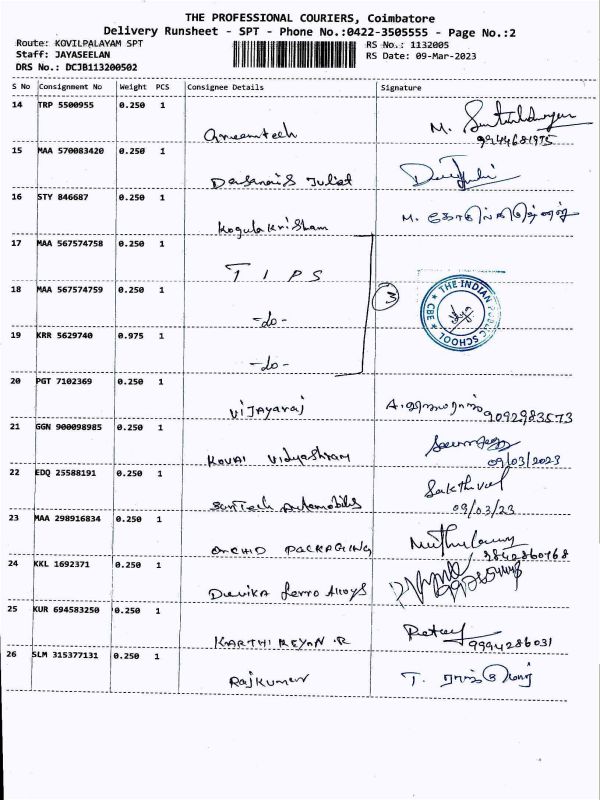 THE PROFESSIONAL COURIERS, Coimbatore
Delivery Runsheet - SPT - Phone No.:0422-3505555 - Page No.:2
Route: KOVILPALAYAM SPT
RS No.: 1132005
Staff: JAYASEELAN
RS Date: 09-Mar-2023
DRS No.: DCJB113200502
S No Consignment No Weight PCS Consignee Details Signature
14 TRP 5500955 0.250 1
M.
9944681975
15 MAA 570083420 0.250 1
Juliet
16 STY 846687 0.250 1
M.
Kogulakrisham
17 MAA 567574758 0.250 1
T I P S
18 MAA 567574759 0.250 1
3
THE INDIAN PUBLIC SCHOOL
CBE
-do-
19 KRR 5629740 0.975 1
-do-
20 PGT 7102369 0.250 1
Vijayaraj 9092983573
21 GGN 900098985 0.250 1
KOVAI Vidyashram 09/03/2023
22 EDQ 25588191 0.250 1
Sakthivel
Suntech Automobiles 09/03/23
23 MAA 298916834 0.250 1
ORCHID PACKAGING 9842860768
24 KKL 1692371 0.250 1
Devika ferro Alloys
25 KUR 694583250 0.250 1
KARTHIKEYAN R 9994286031
26 SLM 315377131 0.250 1
Rajkumar T.